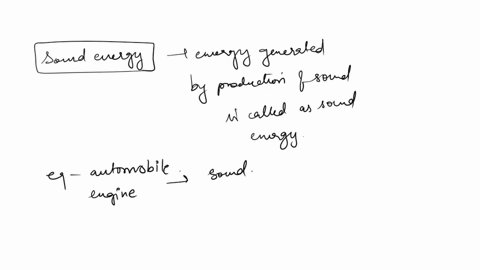 Sound energy → energy generated
by production of sound
is called as sound
energy.
eg - automobile → sound.
engine